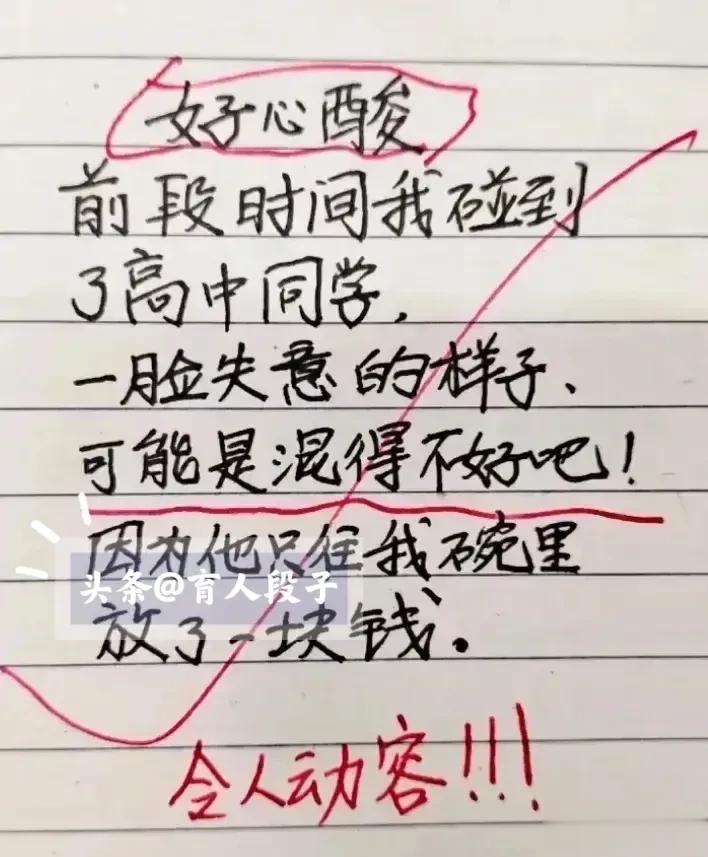 好心酸
前段时间我碰到
了高中同学.
一脸失意的样子、
可能是混得不好吧!
因为他只往我碗里
头条@育人段子
放了一块钱.
令人动容!!!